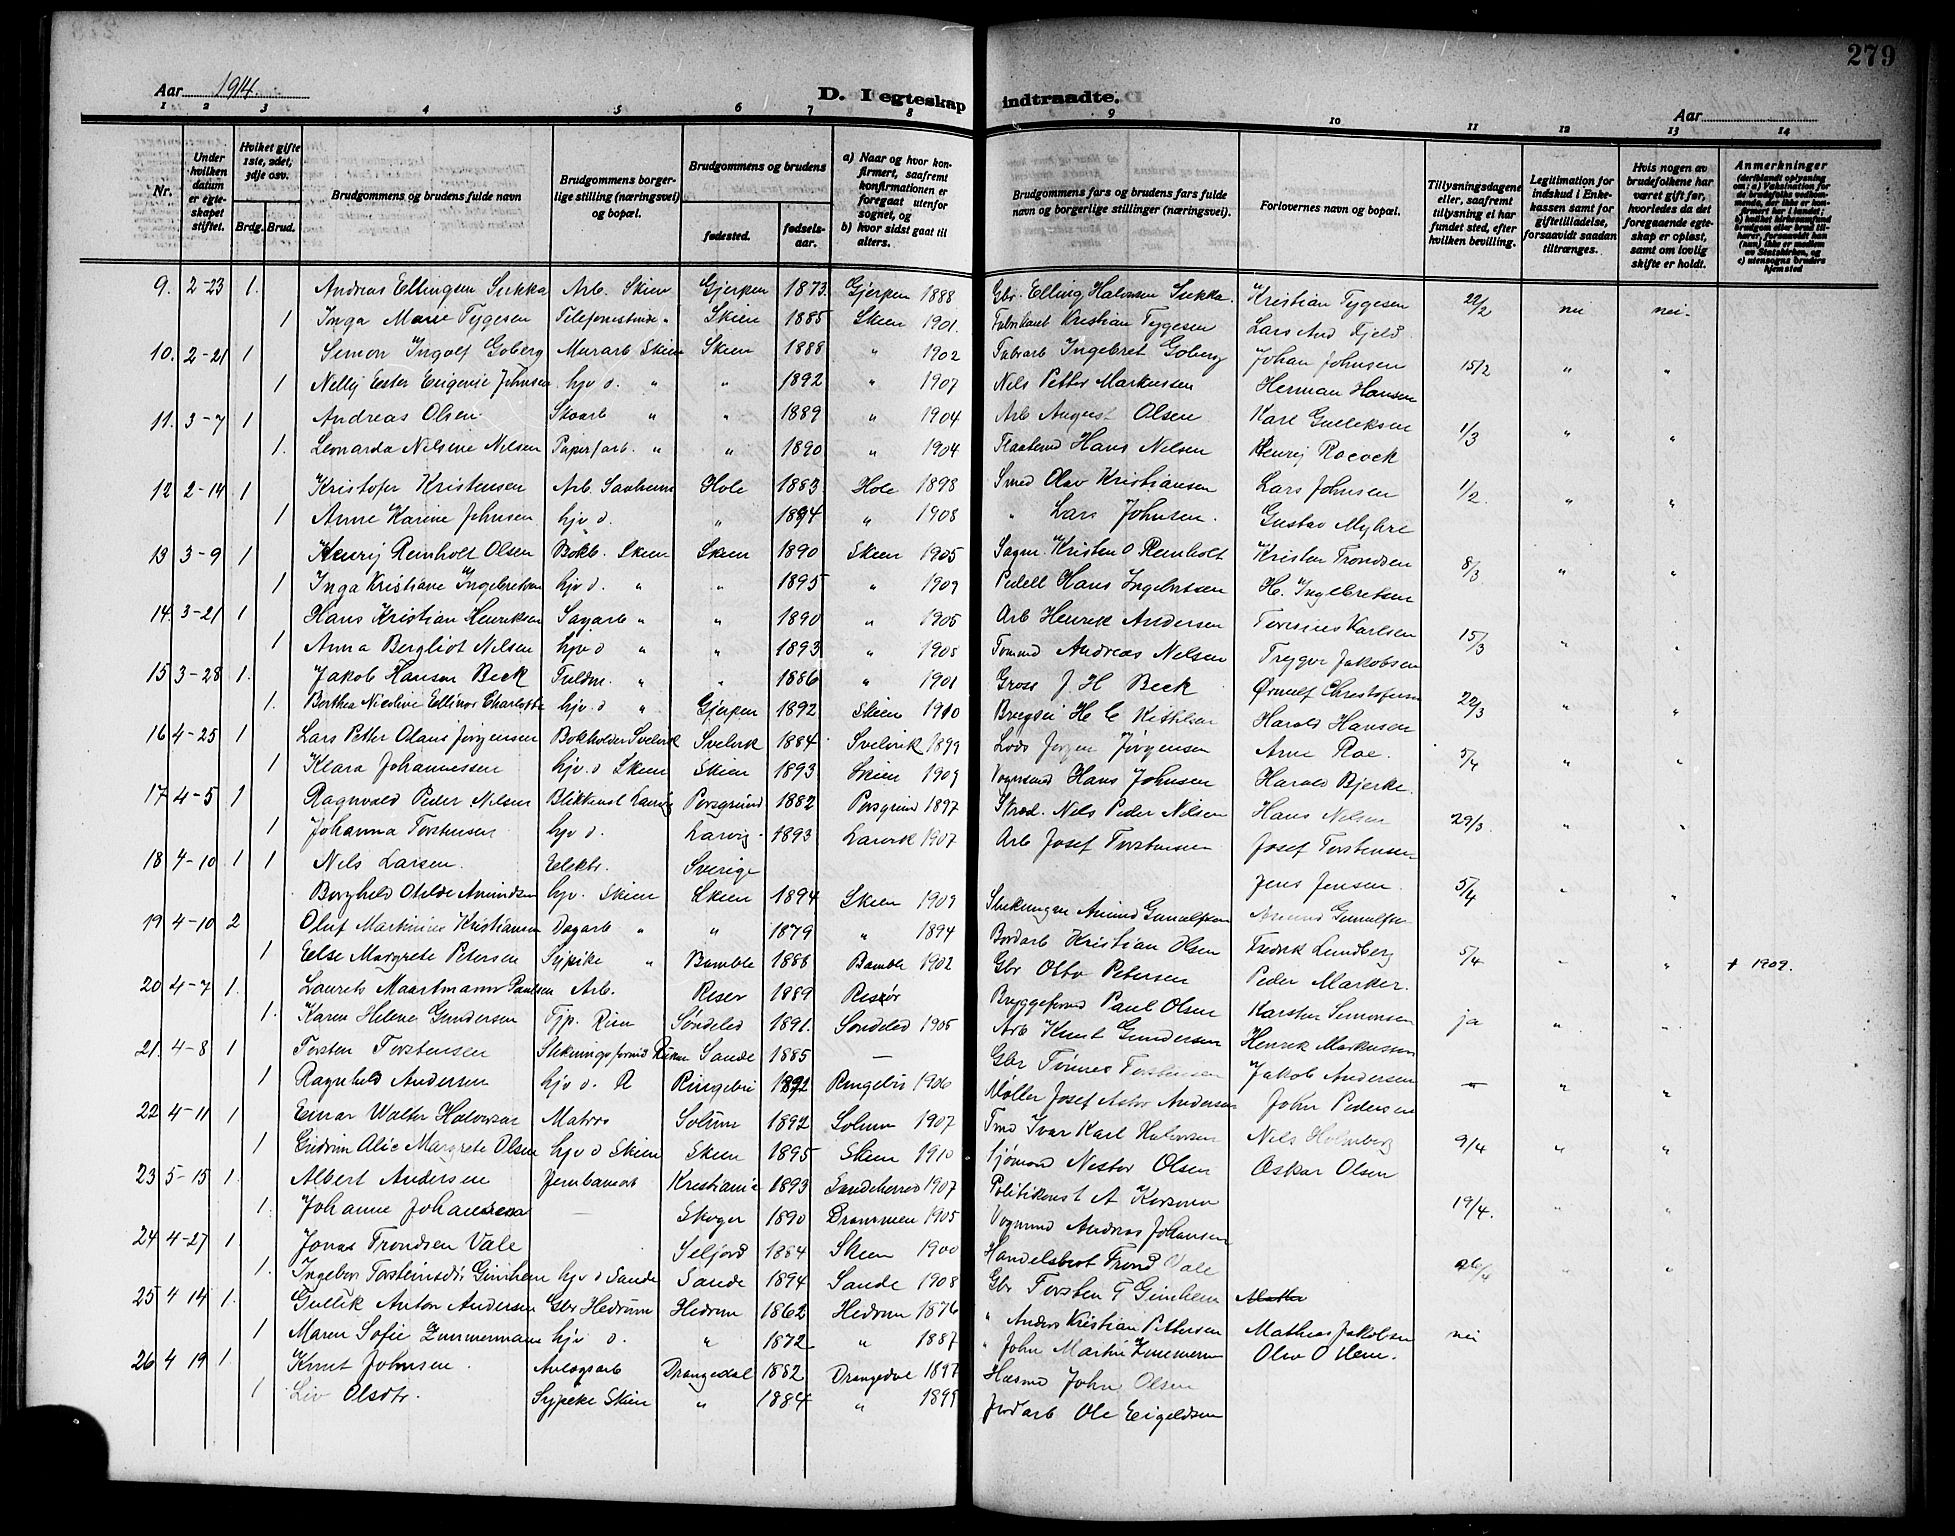 279
Aar 1914. D. I egteskap indtraadte. Aar
1 2 3 4 5 6 7 8 9 10 11 12 13 14
Nr. | Under hvilken datum er egteskapet stiftet. | Hvilket gifte 1ste, 2det, 3dje osv. Brdg. Brud. | Brudgommens og brudens fulde navn | Brudgommens borgerlige stilling (næringsvei) og bopæl. | Brudgommens og brudens fødested. fødselsaar. | a) Naar og hvor konfirmert, saafremt konfirmationen er foregaat utenfor sognet, og b) hvor sidst gaat til alters. | Brudgommens fars og brudens fars fulde navn og borgerlige stillinger (næringsvei). | Forlovernes navn og bopæl. | Tillysningsdagene eller, saafremt tillysning ei har fundet sted, efter hvilken bevilling. | Legitimation for indskud i Enkekassen samt for giftetilladelse, forsaavidt saadan tiltrænges. | Hvis nogen av brudefolkene har været gift før, hvorledes da det foregaaende egteskap er opløst, samt om lovlig skifte er holdt. | Anmerkninger
9. 2-23 1. Andreas Ellingsen Sukka Arb. Skien Gjerpen 1873 Gjerpen 1888 Gbr. Elling Halvorsen Sukka. Kristian Tygesen 22/2 nei nei.
1 Inga Marie Tygesen Telefonistinde " Skien 1885 Skien 1901. Fabrikant Kristian Tygesen Lars And Fjeld.
10. 2-21 1 Simon Ingolf Goberg Murarb Skien Skien 1888 " 1902 Ingebret Goberg Johan Johnsen 15/2 " "
1 Nelly Ester Eugenie Johnsen hjv d. " " 1892 " 1907 Nils Petter Markussen Herman Hansen
11. 3-7 1 Andreas Olsen. Skoarb " " 1889 " 1904 Arb August Olsen Karl Gulleksen 1/3 " "
1. Leonarda Nilsine Nilsen Papirfarb. " " 1890 " 1904 Hans Nilsen Henrij Rocock
12 2-14 1 Kristofer Kristensen Arb. Hole 1883 Hole 1898 Smed Olav Kristiansen Lars Johnsen 1/2. " "
1 Anne Karine Johnsen hjv d. " 1894 " 1908 " Lars Johnsen. Gustav Myhre
13 3-9 1 Henrij Reinholt Olsen Bokb. Skien Skien 1890 Skien 1905 Sagm. Kristen O Reinholt Kristen Trondsen 8/3 " "
1 Inga Kristiane Ingebretsen hjv d. " " 1895 " 1909 Pedell Hans Ingebretsen H. Ingebretsen
14. 3-21 1 Hans Kristian Henriksen Sagarb " " 1890 " 1905 Arb Henrik Andersen Karlsen 15/3 "
1 Anna Bergliot Nilsen hjv d " " 1893 " 1908 Andreas Nilsen Trygve Jakobsen
15 3-28 1. Jakob Hanson Beck Fuldm. " " 1886 " 1901 Gross J. H Beck 22/3 " "
1. Berthea Nicoline Ellinor Charlotte hjv d " Gjerpen 1892 Skien 1910 H. C Harald Hansen
16 4-25 1 Lars Petter Olaus Jørgensen Bokholder Svelvik Svelvik 1884 Svelvik 1899 Lods Jørgen Jørgensen Arne Roe. 5/4 " "
1 Klara Johannessen hjv. d Skien Skien 1893 Skien 1909 Hans Johnsen Harald Bjerke.
17 4-5 1 Ragnvald Peder Nilsen Porsgrund 1882 Porsgrund 1897 Skræd. Nils Peder Nilsen Hans Nelsen 29/3. " "
1 Johanna Torstensen hjv d. Larvig 1893 Larvik 1907 Arb Josef Torstensen Josef Torstensen
18 4-10 1 1 Nils Larsen. Elektr. Sverige Jens Jensen. 5/4 " "
Borghild Otilde Amundsen hjv. Skien Skien 1894 Skien 1909 Amund
19 4-10 2 Oluf Martinius Kristiansen Dagarb " " 1879 " 1894 Bordarb Kristian Olsen Fredrik Lundberg 5/4 " "
1 Else Margrete Petersen Sypike " Bamble 1888 Bamble 1902 Gbr Otto Petersen Peder Marker. † 1909.
20 4-7 1. Laurits Maartmann Paulsen Arb. Reser 1889 Risør Bryggeformd Paul Olsen Karsten Simonsen ja " "
1. Karen Helene Gundersen Tjp. Søndeled 1891. Søndeled 1905 Arb Knut Gundersen Henrik Markussen
21. 4-8 1 Torsten Torstensen Sande 1885 — Gbr Tønnes Torstensen Jakob Andersen — " "
1 Ragnhild Andersen hjv d. R Ringebu 1892 Ringebu 1906 Møller Josef Andersen John Pedersen
22 4-11 1 Einar Walter Halvorsen Matros Solum 1892 Solum 1907 Ivar Karl Halvorsen Nils Holmberg 9/4 " "
1 Gudrun Alic Margrete Olsen hjv d Skien Skien 1895 Skien 1910 Sjømand Nestor Olsen Oskar Olsen
23 5-15 1. Albert Andersen Jernbanearb Kristiania 1893 Sandeherred 1907 Politikonst A 19/4. " "
1. Johanne Johansen — Skoger 1890 Drammen 1905 Vognmd Andreas Johansen
24 4-27 1. Jonas Trondsen Vale Seljord 1884 Skien 1900 Trond Vale 26/4 " "
1. Ingebor Torsteinsdtr Gimhem hjv d Sande Sande 1894 Sande 1908 Gbr Torsten T Gimhem
25 4 14 1. Gullik Anton Andersen Gbr Hedrum Hedrum 1862 Hedrum 1876 " Anders Kristian Pettersen Mathias Jakobsen nei
1 Maren Sofie Zimmermann hjv d. " 1872 " 1887 " John Martin Zimmermn Olav O Hem.
26 4 19 1. Knut Johnsen. Anlægsarb Drangedal 1882 Drangedal 1897 Husmd John Olsen
1 Liv Olsdtr. Sypike Skien " 1884 " 1899 Jordarb Ole Eigeldsen